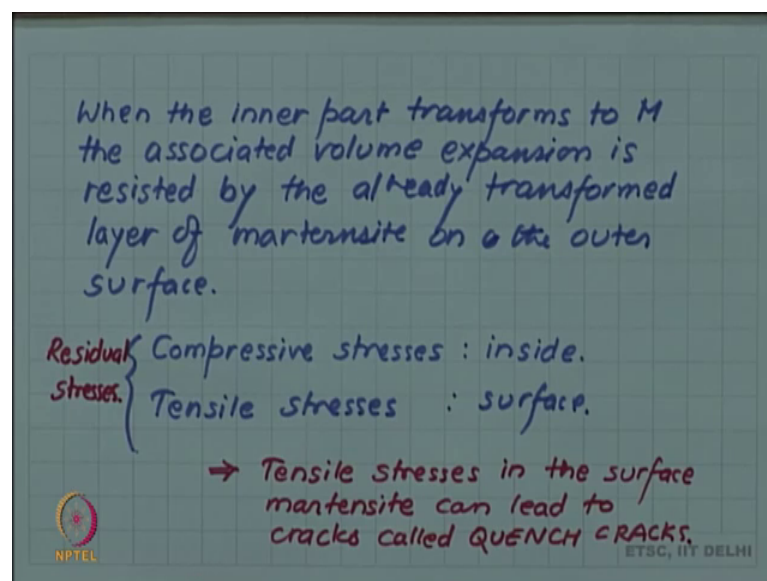 When the inner part transforms to M
the associated volume expansion is
resisted by the already transformed
layer of marternsite on the outer
surface.
Residual Stresses.
Compressive stresses : inside.
Tensile stresses : surface.
→ Tensile stresses in the surface
martensite can lead to
cracks called QUENCH CRACKS.
NPTEL
ETSC, IIT DELHI